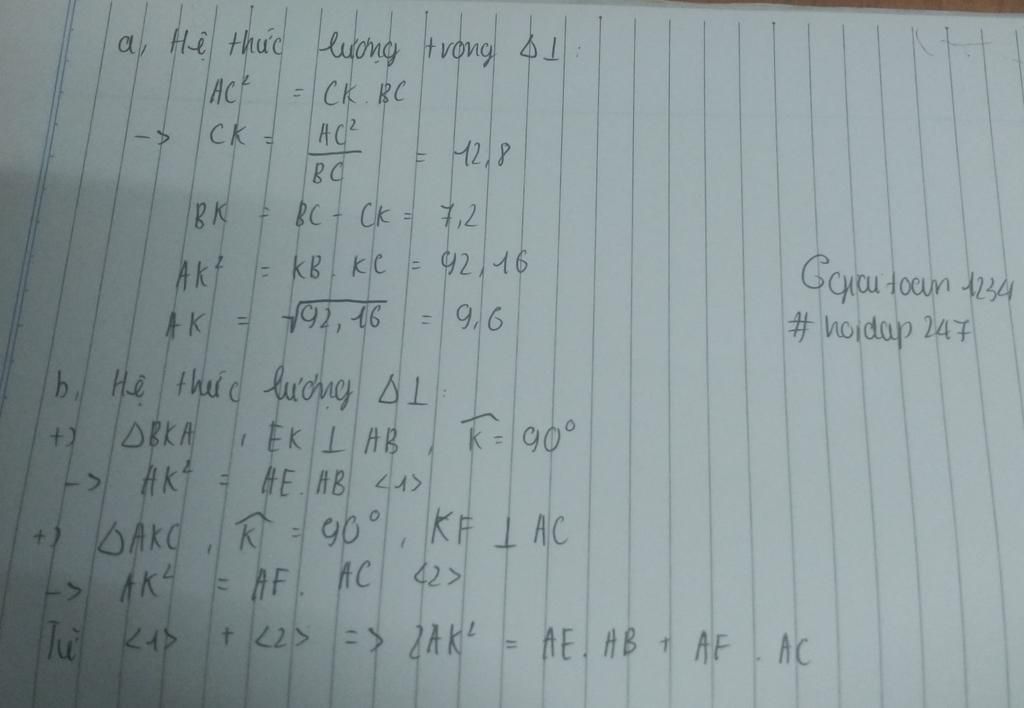 a, Hệ thức lượng trong Δ⊥:
AC² = CK. BC
-> CK = AC²/BC = 12,8
BK = BC - CK = 7,2
AK² = KB. KC = 92,16
AK = √92,16 = 9,6
Gghaitoan1234
# hoidap247
b, Hệ thức lượng Δ⊥:
+) ΔBKA, EK ⊥ AB, K̂ = 90°
-> AK² = AE. AB <1>
+) ΔAKC, K̂ = 90°, KF ⊥ AC
-> AK² = AF. AC <2>
Từ <1> + <2> => 2AK² = AE. AB + AF. AC